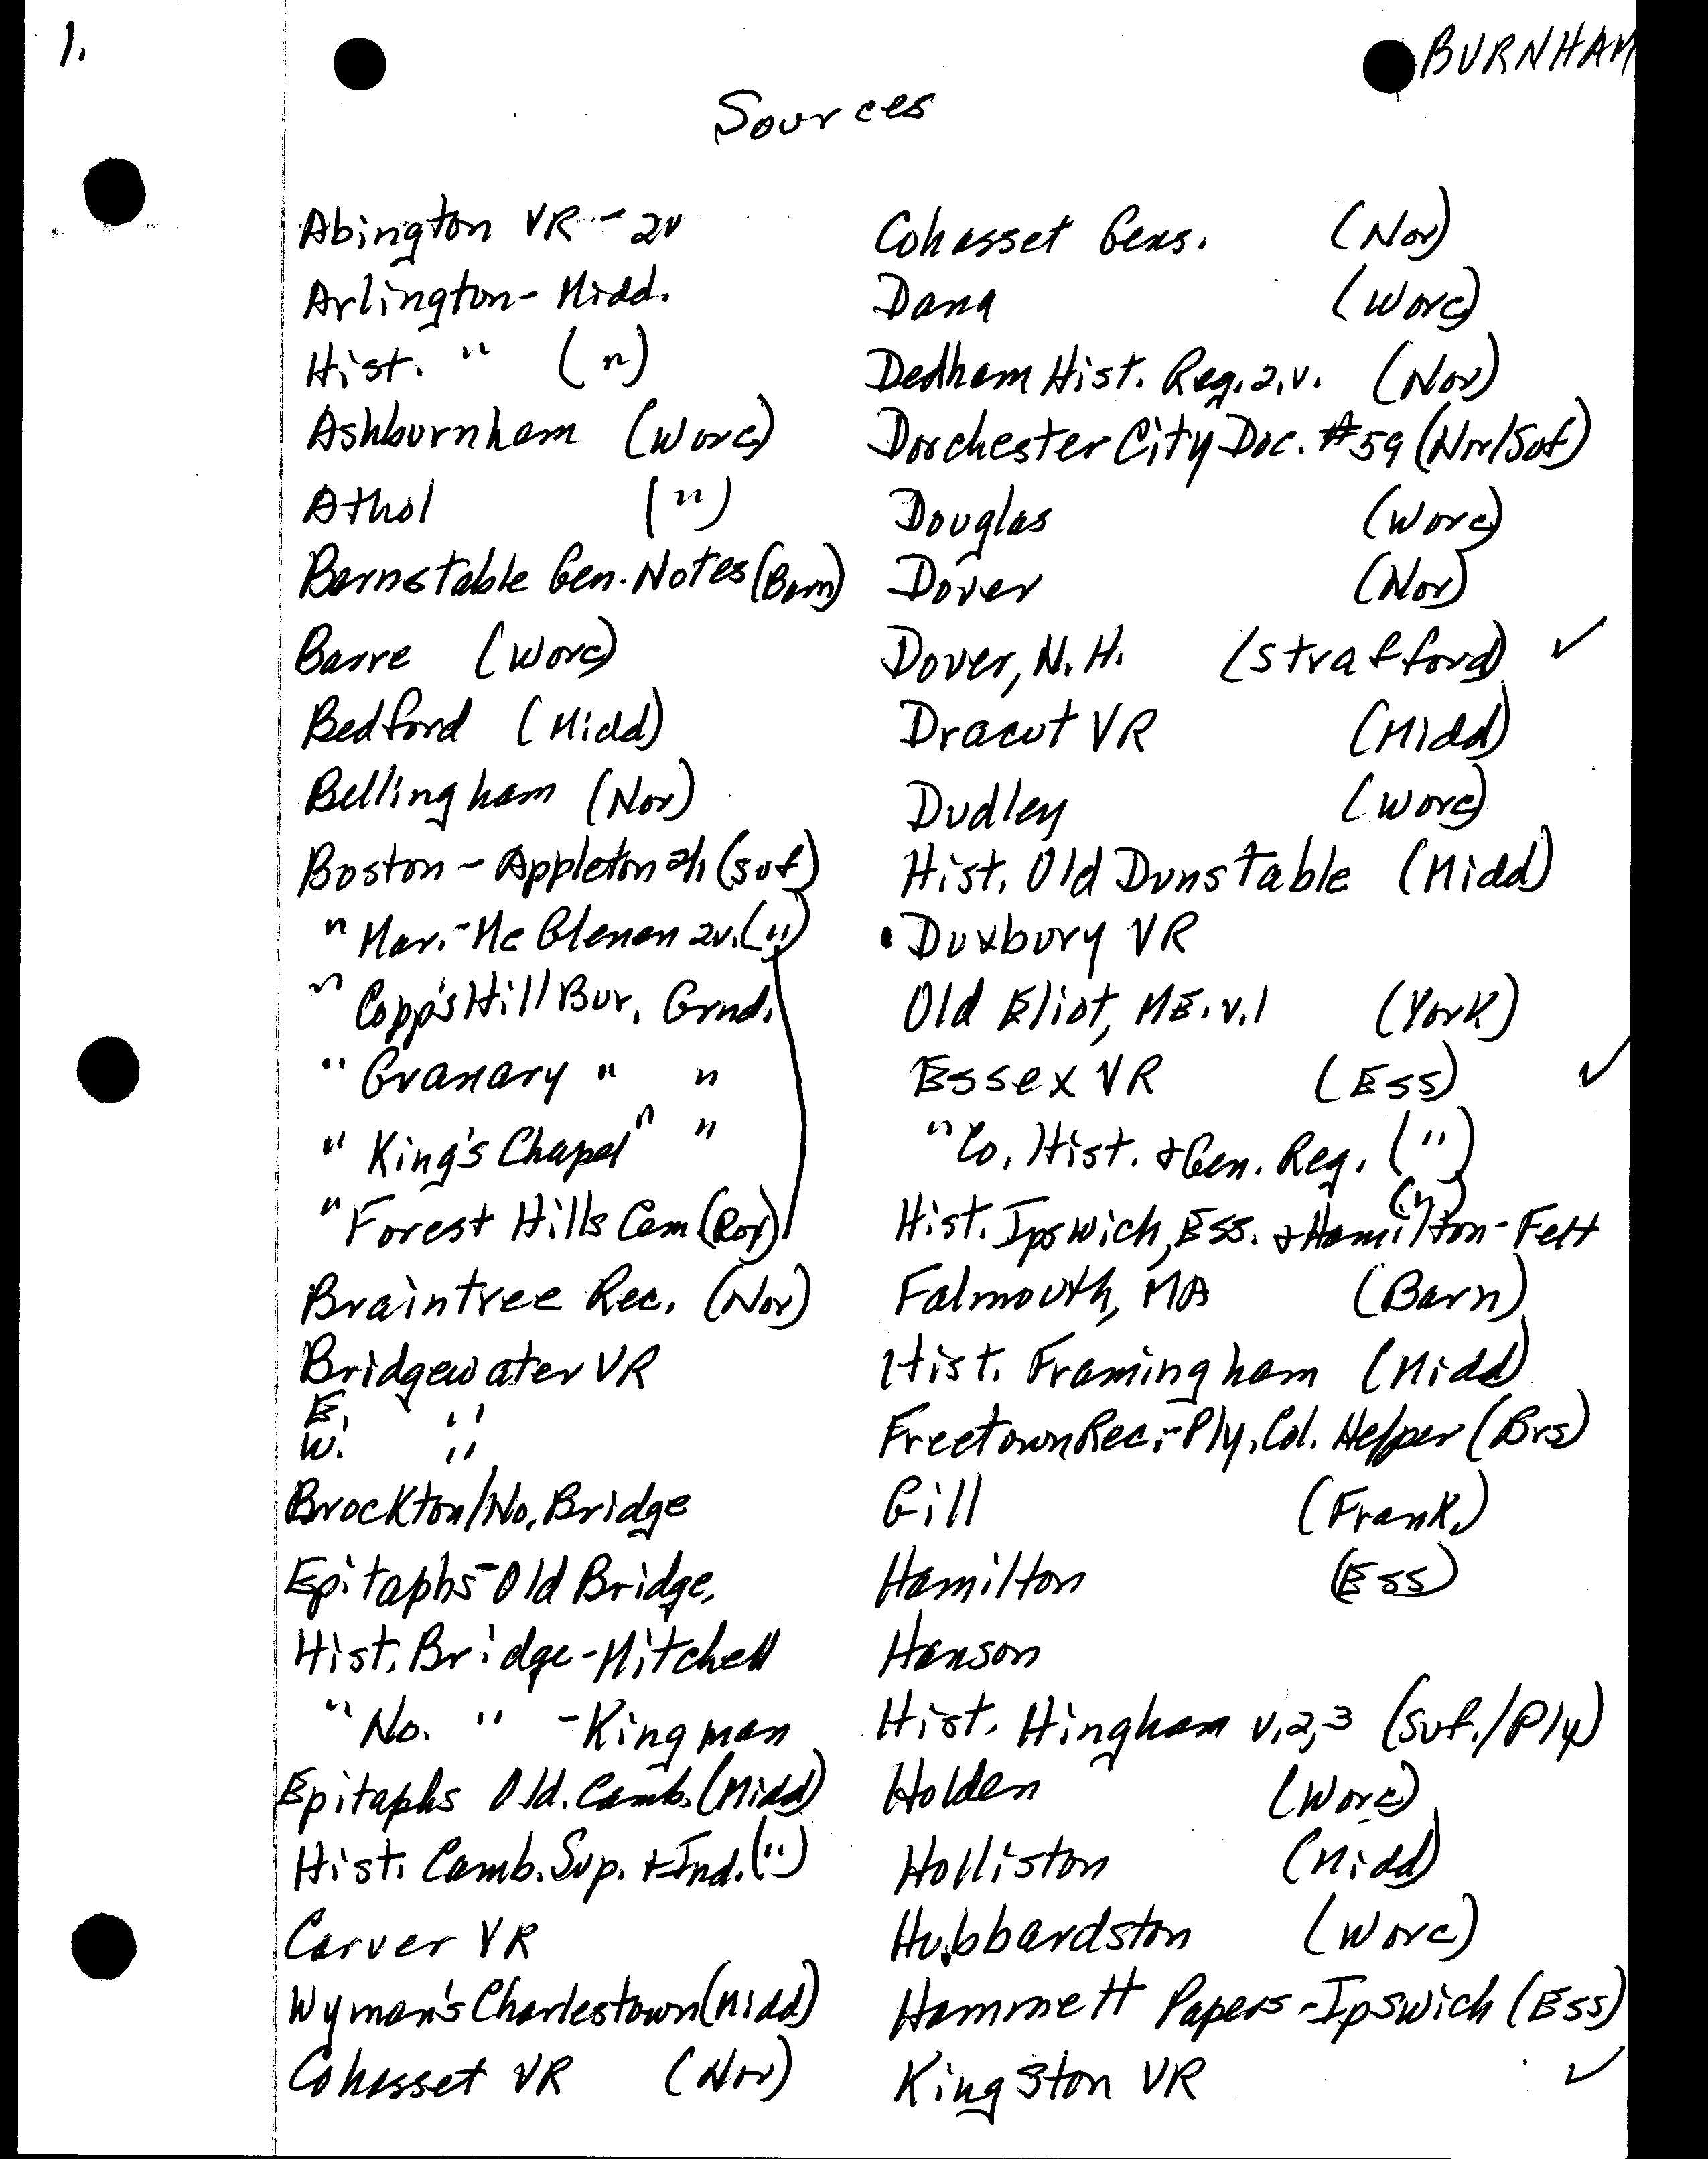 1.
BURNHAM
Sources
Abington VR - 2v
Arlington - Midd.
Hist. " (")
Ashburnham (Worc)
Athol (")
Barnstable Gen. Notes (Barn)
Barre (Worc)
Bedford (Midd)
Bellingham (Nor)
Boston - Appleton (Suf)
" Mar. - McGlenen 2v. (")
" Copp's Hill Bur. Grnd.
" Granary " "
" King's Chapel " "
" Forest Hills Cem (Rox)
Braintree Rec. (Nor)
Bridgewater VR
E. "
W. "
Brockton/No. Bridge
Epitaphs - Old Bridge.
Hist. Bridge - Mitchell
" No. " - Kingman
Epitaphs Old. Camb. (Midd)
Hist. Camb. Sup. + Ind. (")
Carver VR
Wyman's Charlestown (Midd)
Cohasset VR (Nor)
Cohasset Gens. (Nor)
Dana (Worc)
Dedham Hist. Reg. 2, v. (Nor)
Dorchester City Doc. #59 (Nor/Suf)
Douglas (Worc)
Dover (Nor)
Dover, N.H. (Strafford) ✓
Dracut VR (Midd)
Dudley (Worc)
Hist. Old Dunstable (Midd)
Duxbury VR
Old Eliot, ME. v.1 (York)
Essex VR (Ess) ✓
" Co. Hist. + Gen. Reg. (")
Hist. Ipswich, Ess. + Hamilton - Felt (")
Falmouth, MA (Barn)
Hist. Framingham (Midd)
Freetown Rec. - Ply. Col. Helper (Brs)
Gill (Frank.)
Hamilton (Ess)
Hanson
Hist. Hingham v. 2, 3 (Suf./Ply)
Holden (Worc)
Holliston (Midd)
Hubbardston (Worc)
Hammett Papers - Ipswich (Ess)
Kingston VR ✓